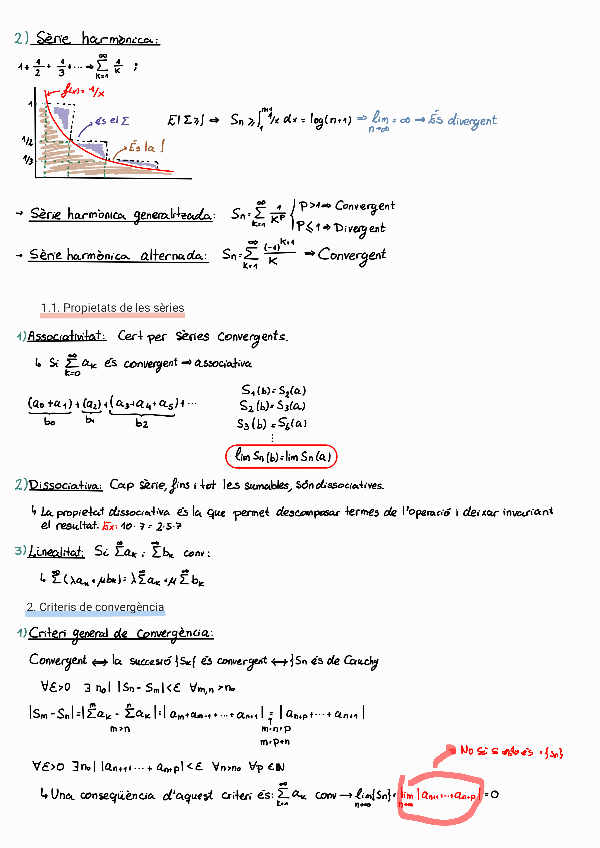 2) Sèrie harmònica:
1 + 1/2 + 1/3 + ... → ∞ Σ k=1 1/k ;
f(x) = 1/x
1
1/2
1/3
és el Σ
És la ∫
El Σ ≥ ∫ ⇒ Sn ≥ ∫₁ⁿ⁺¹ 1/x dx = log(n+1) ⇒ lim n→∞ = ∞ → És divergent
→ Sèrie harmònica generalitzada: Sn = ∞ Σ k=1 1/K^p { P>1 ⇒ Convergent
P≤1 ⇒ Divergent
→ Sèrie harmònica alternada: Sn = ∞ Σ k=1 (-1)^(k+1)/K ⇒ Convergent
1.1. Propietats de les sèries
1) Associativitat: Cert per sèries convergents.
↳ Si ∞ Σ k=0 ak és convergent ⇒ associativa
(a0+a1)+(a2)+(a3+a4+a5)+...
b0 b1 b2
S1(b)=S2(a)
S2(b)=S3(a)
S3(b)=S6(a)
⋮
lim Sn(b)=lim Sn(a)
2) Dissociativa: Cap sèrie, fins i tot les sumables, són dissociatives.
↳ La propietat dissociativa és la que permet descomposar termes de l'operació i deixar invariant
el resultat. Ex: 10·7=2·5·7
3) Linealitat: Si Σak i Σbk conv:
↳ Σ(λak+μbk)=λΣak+μΣbk
2. Criteris de convergència
1) Criteri general de convergència:
Convergent ⟷ la successió {Sk} és convergent ⟷ {Sn és de Cauchy
∀ε>0 ∃n0 | |Sn - Sm|<ε ∀m,n>n0
|Sm - Sn|=|Σak - Σak|=|am+am-1+...+an+1| = |an+p+...+an+1|
m>n m-n=p
m=p+n
∀ε>0 ∃n0 | |an+1+...+an+p|<ε ∀n>n0 ∀p∈ℕ
No sé si això és {Sn}
↳ Una conseqüència d'aquest criteri és: ∞ Σ k=1 ak conv → lim n→∞ {Sn} = lim n→∞ |an+1+...+an+p| = 0